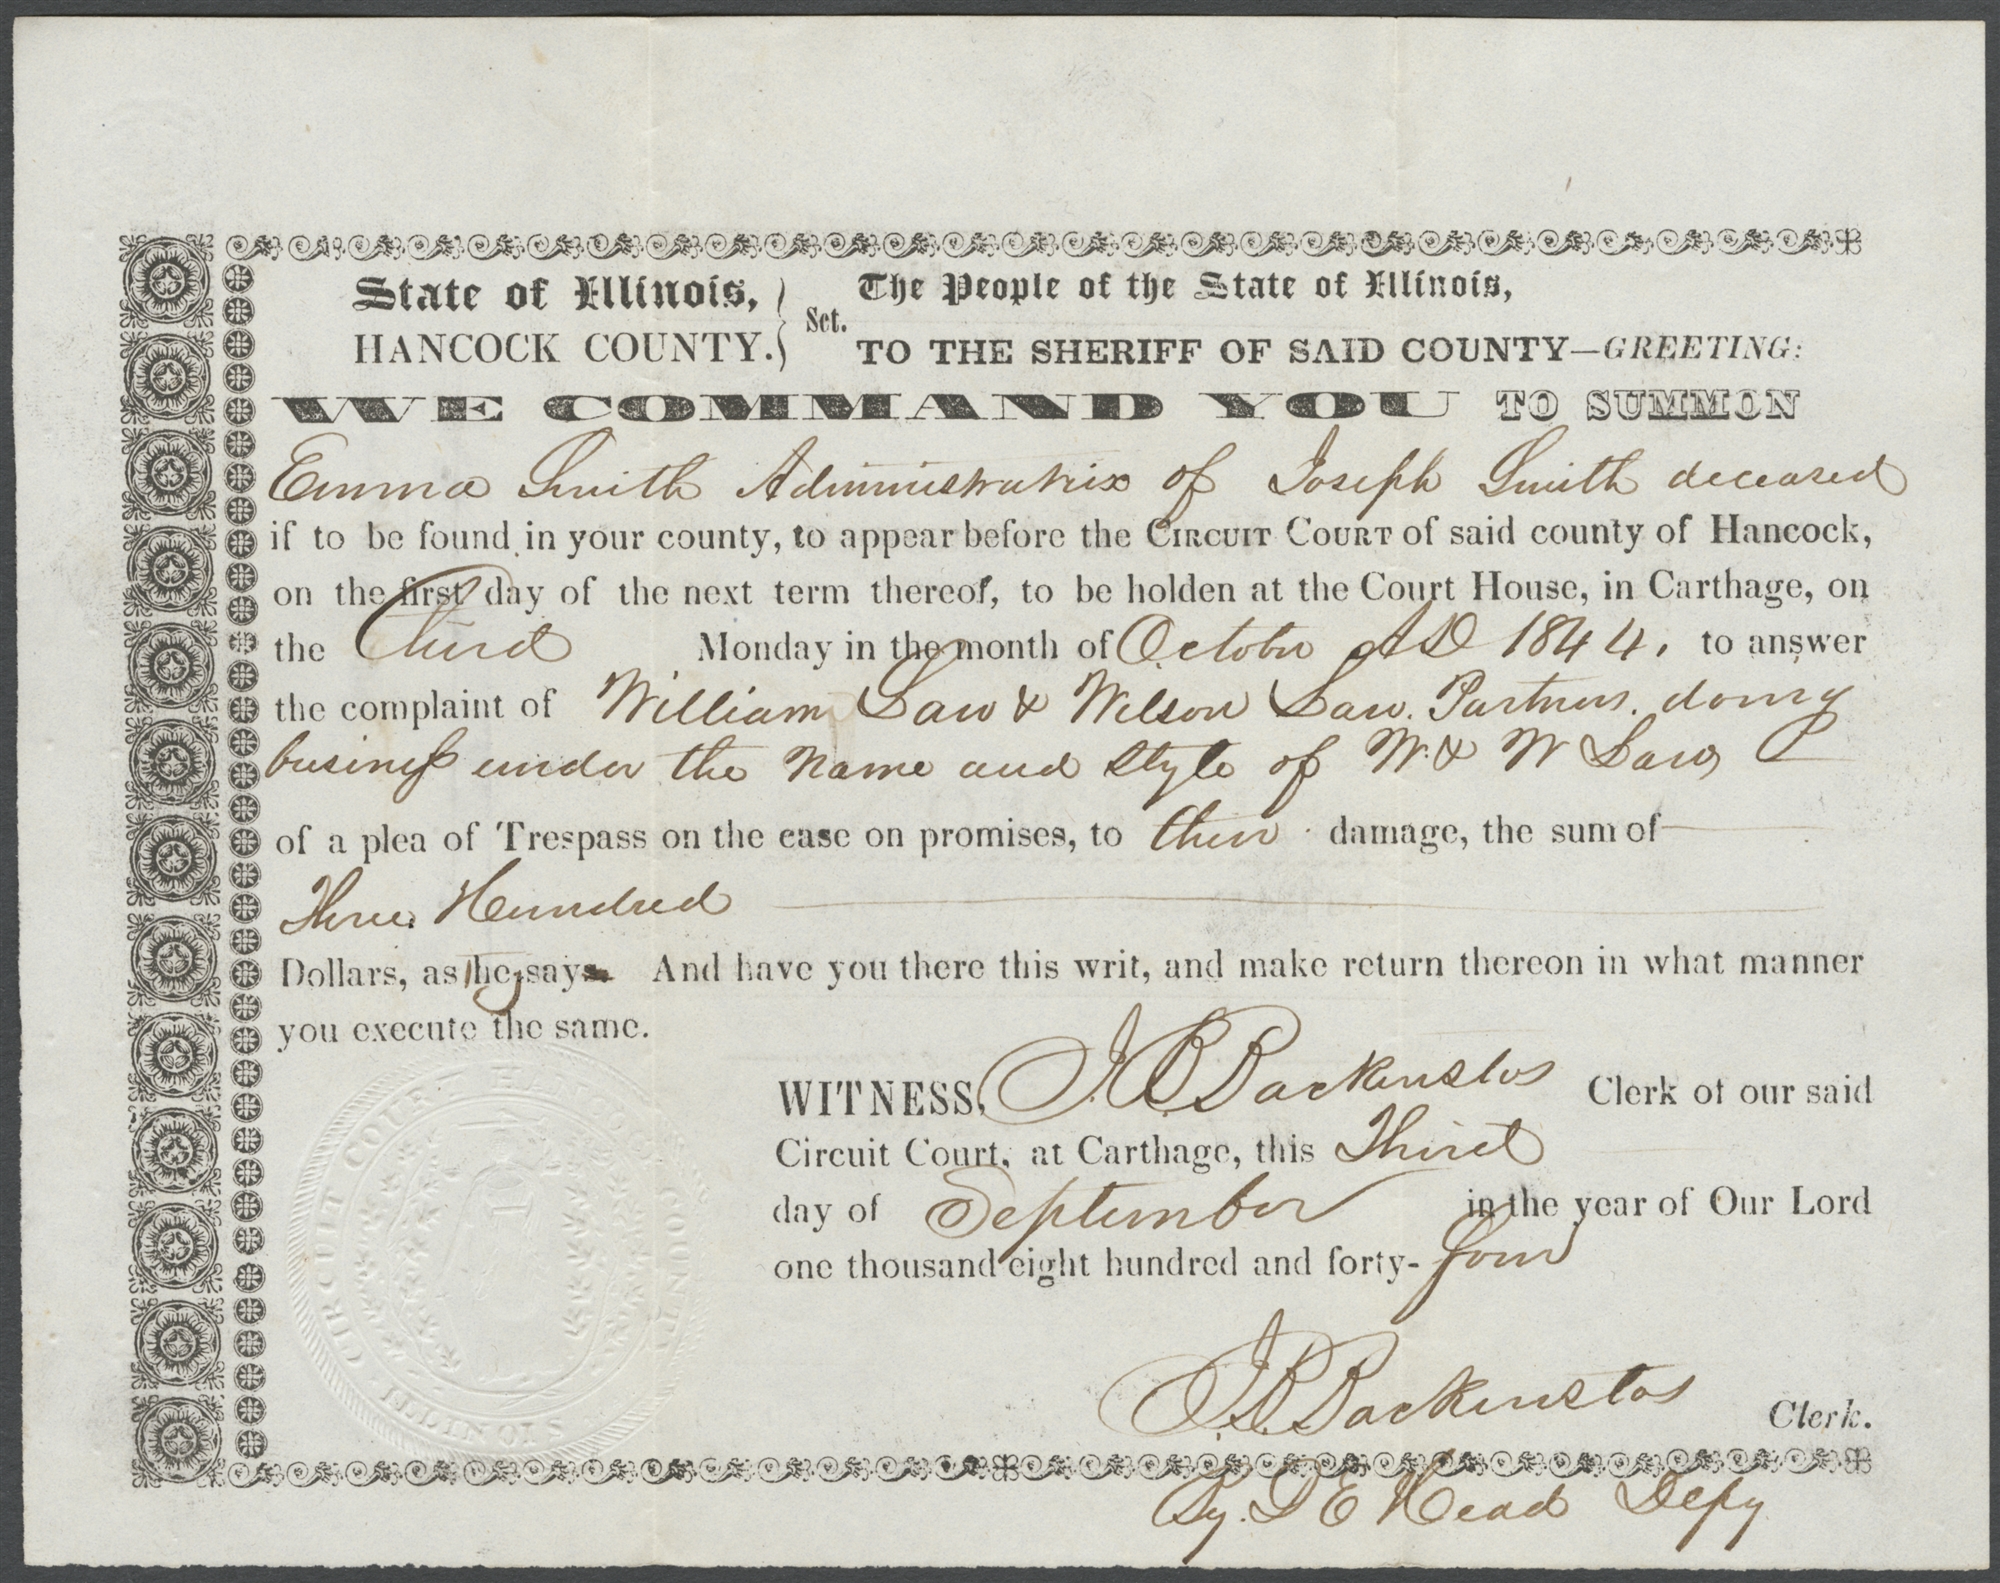 State of Illinois, } Sct. The People of the State of Illinois,
HANCOCK COUNTY. TO THE SHERIFF OF SAID COUNTY—GREETING:
WE COMMAND YOU TO SUMMON
Emma Smith Administratrix of Joseph Smith deceased
if to be found in your county, to appear before the CIRCUIT COURT of said county of Hancock,
on the first day of the next term thereof, to be holden at the Court House, in Carthage, on
the Third Monday in the month of October AD 1844, to answer
the complaint of William Law & Wilson Law. Partners. doing
business under the name and style of W. & W Law
of a plea of Trespass on the case on promises, to their damage, the sum of
Three Hundred
Dollars, as they say. And have you there this writ, and make return thereon in what manner
you execute the same.
WITNESS, J. B. Backenstos Clerk of our said
Circuit Court, at Carthage, this Third
day of September in the year of Our Lord
one thousand eight hundred and forty-four
J. B. Backenstos Clerk.
By. D E Head Depy
CIRCUIT COURT
ILLINOIS